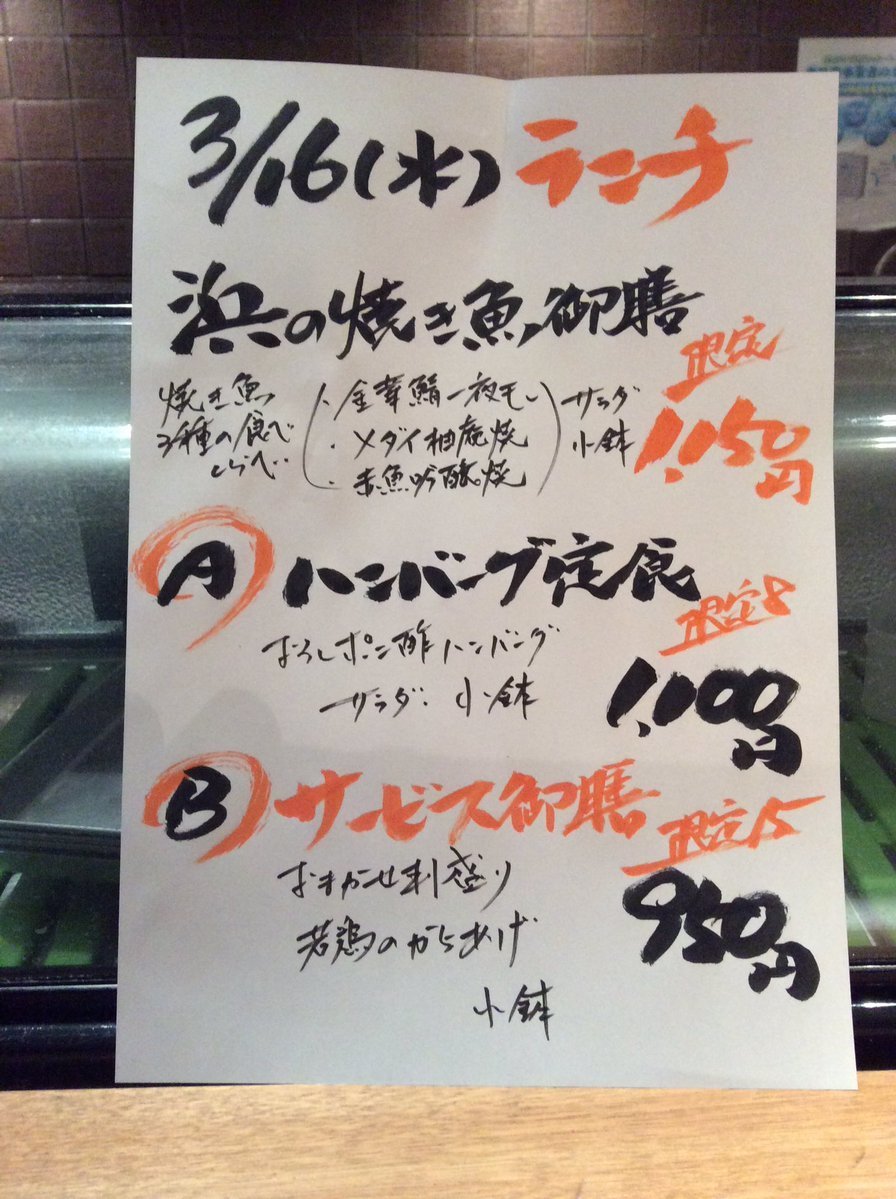 3/16(水) ランチ
浜の焼き魚御膳
限定
1,150円
焼き魚
3種の食べ
くらべ
・金華鯖一夜干し
・メダイ柚庵焼
・赤魚吟醸焼
サラダ
小鉢
A ハンバーグ定食
限定8
おろしポン酢ハンバーグ
サラダ. 小鉢
1,100円
B サービス御膳
限定15
おまかせ刺盛り
950円
若鶏のからあげ
小鉢